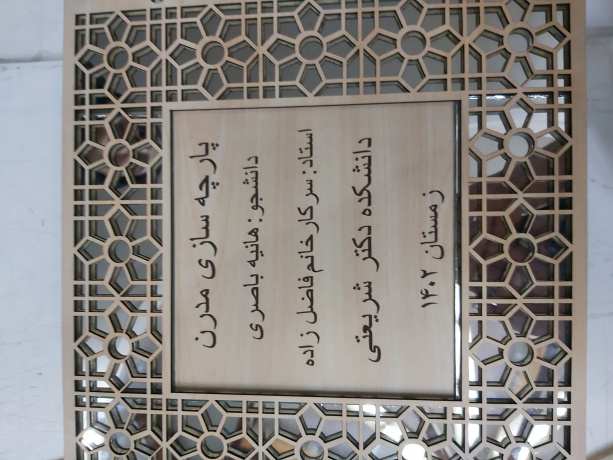 پارچه سازی مدرن
دانشجو: هانیه باصری
استاد: سرکار خانم فاضل زاده
دانشکده دکتر شریعتی
زمستان ۱۴۰۲